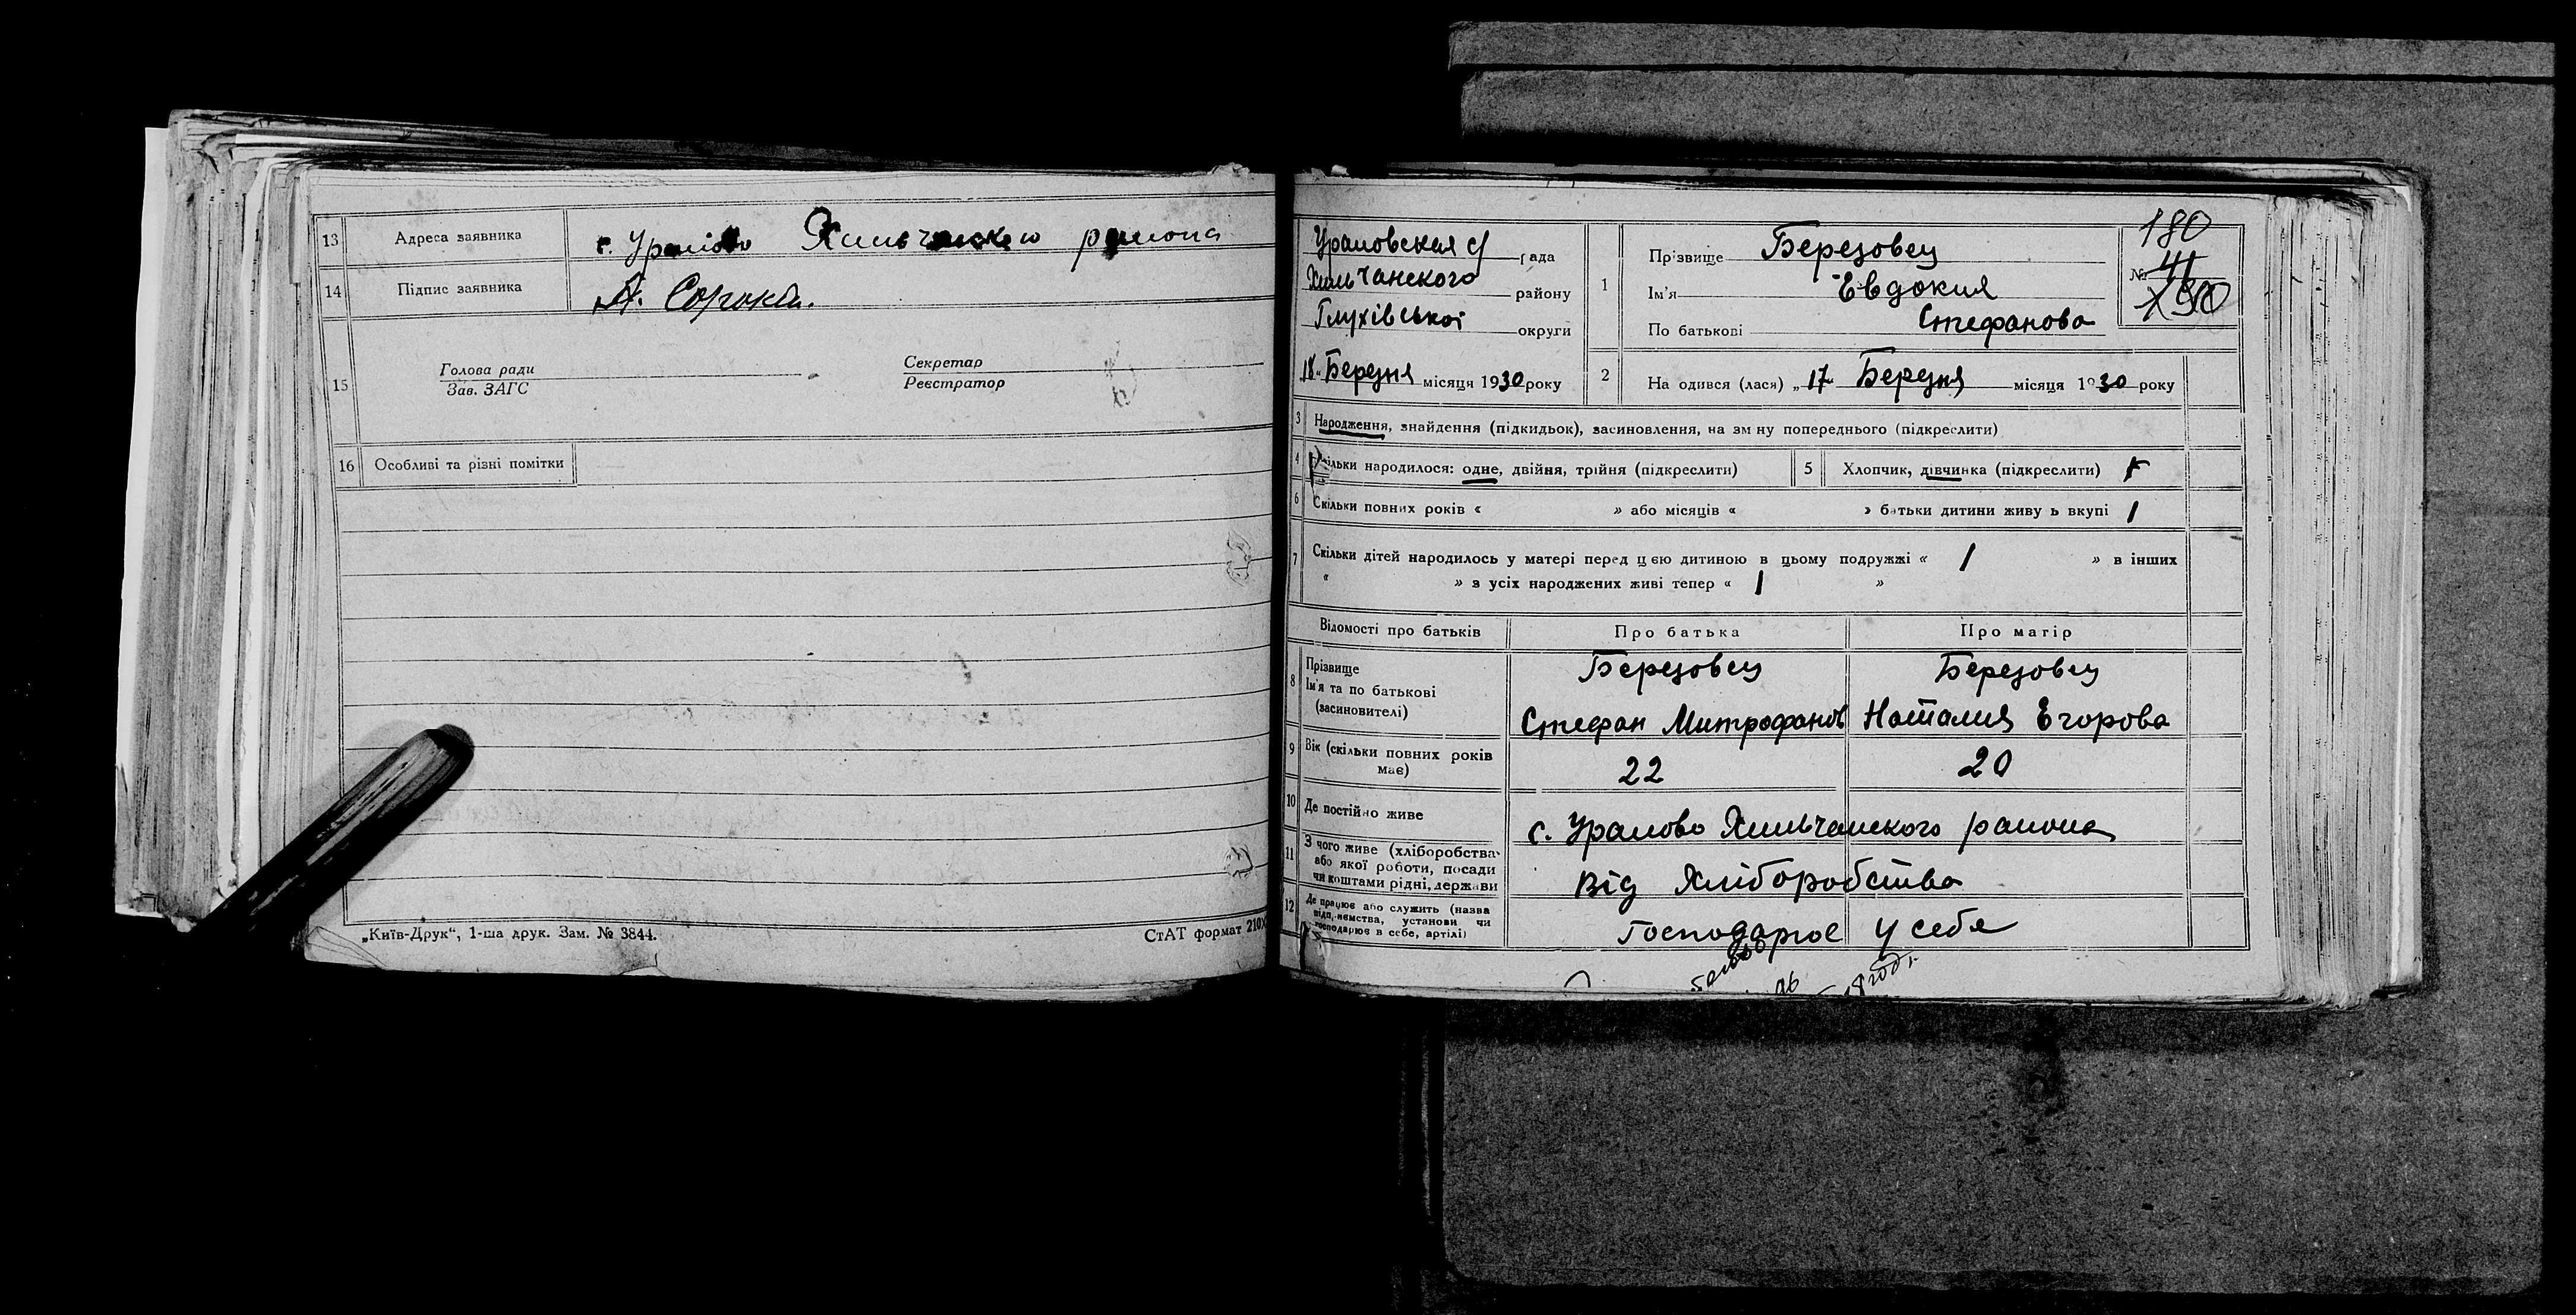 13 Адреса заявника с. Уралово Хильчанского района
14 Підпис заявника А. Сорока.
15 Голова ради
Зав. ЗАГС
Секретар
Реєстратор
16 Особливі та різні помітки
„Київ-Друк“, 1-ша друк. Зам. № 3844.
СтАТ формат 210Х
Ураловская с/ рада
Хильчанского району
Глухівської округи
18 „ Березня місяця 1930 року
1 Прізвище Березовец
Ім'я Евдокия
По батькові Стефанова
180
№ 41
2 На одився (лася) „ 17 Березня місяця 1930 року
3 Народження, знайдення (підкидьок), засиновлення, на зм ну попереднього (підкреслити)
4 Скільки народилося: одне, двійня, трійня (підкреслити)
5 Хлопчик, дівчинка (підкреслити)
6 Скільки повних років « » або місяців « » батьки дитини живу ь вкупі /
7 Скільки дітей народилось у матері перед цєю дитиною в цьому подружжі « / » в інших
« » з усіх народжених живі тепер « / »
Відомості про батьків Про батька Про матір
8 Прізвище Березовец Березовец
Ім'я та по батькові
(засиновителі) Стефан Митрофанов Наталия Егорова
9 Вік (скільки повних років
має) 22 20
10 Де постійно живе с. Уралово Хильчанского района
11 З чого живе (хліборобства
або якої роботи, посади
чи коштами рідні, держави Від Хліборобства
12 Де працює або служить (назва
підприємства, установи чи
господарює в себе, артілі) Господарює у себе